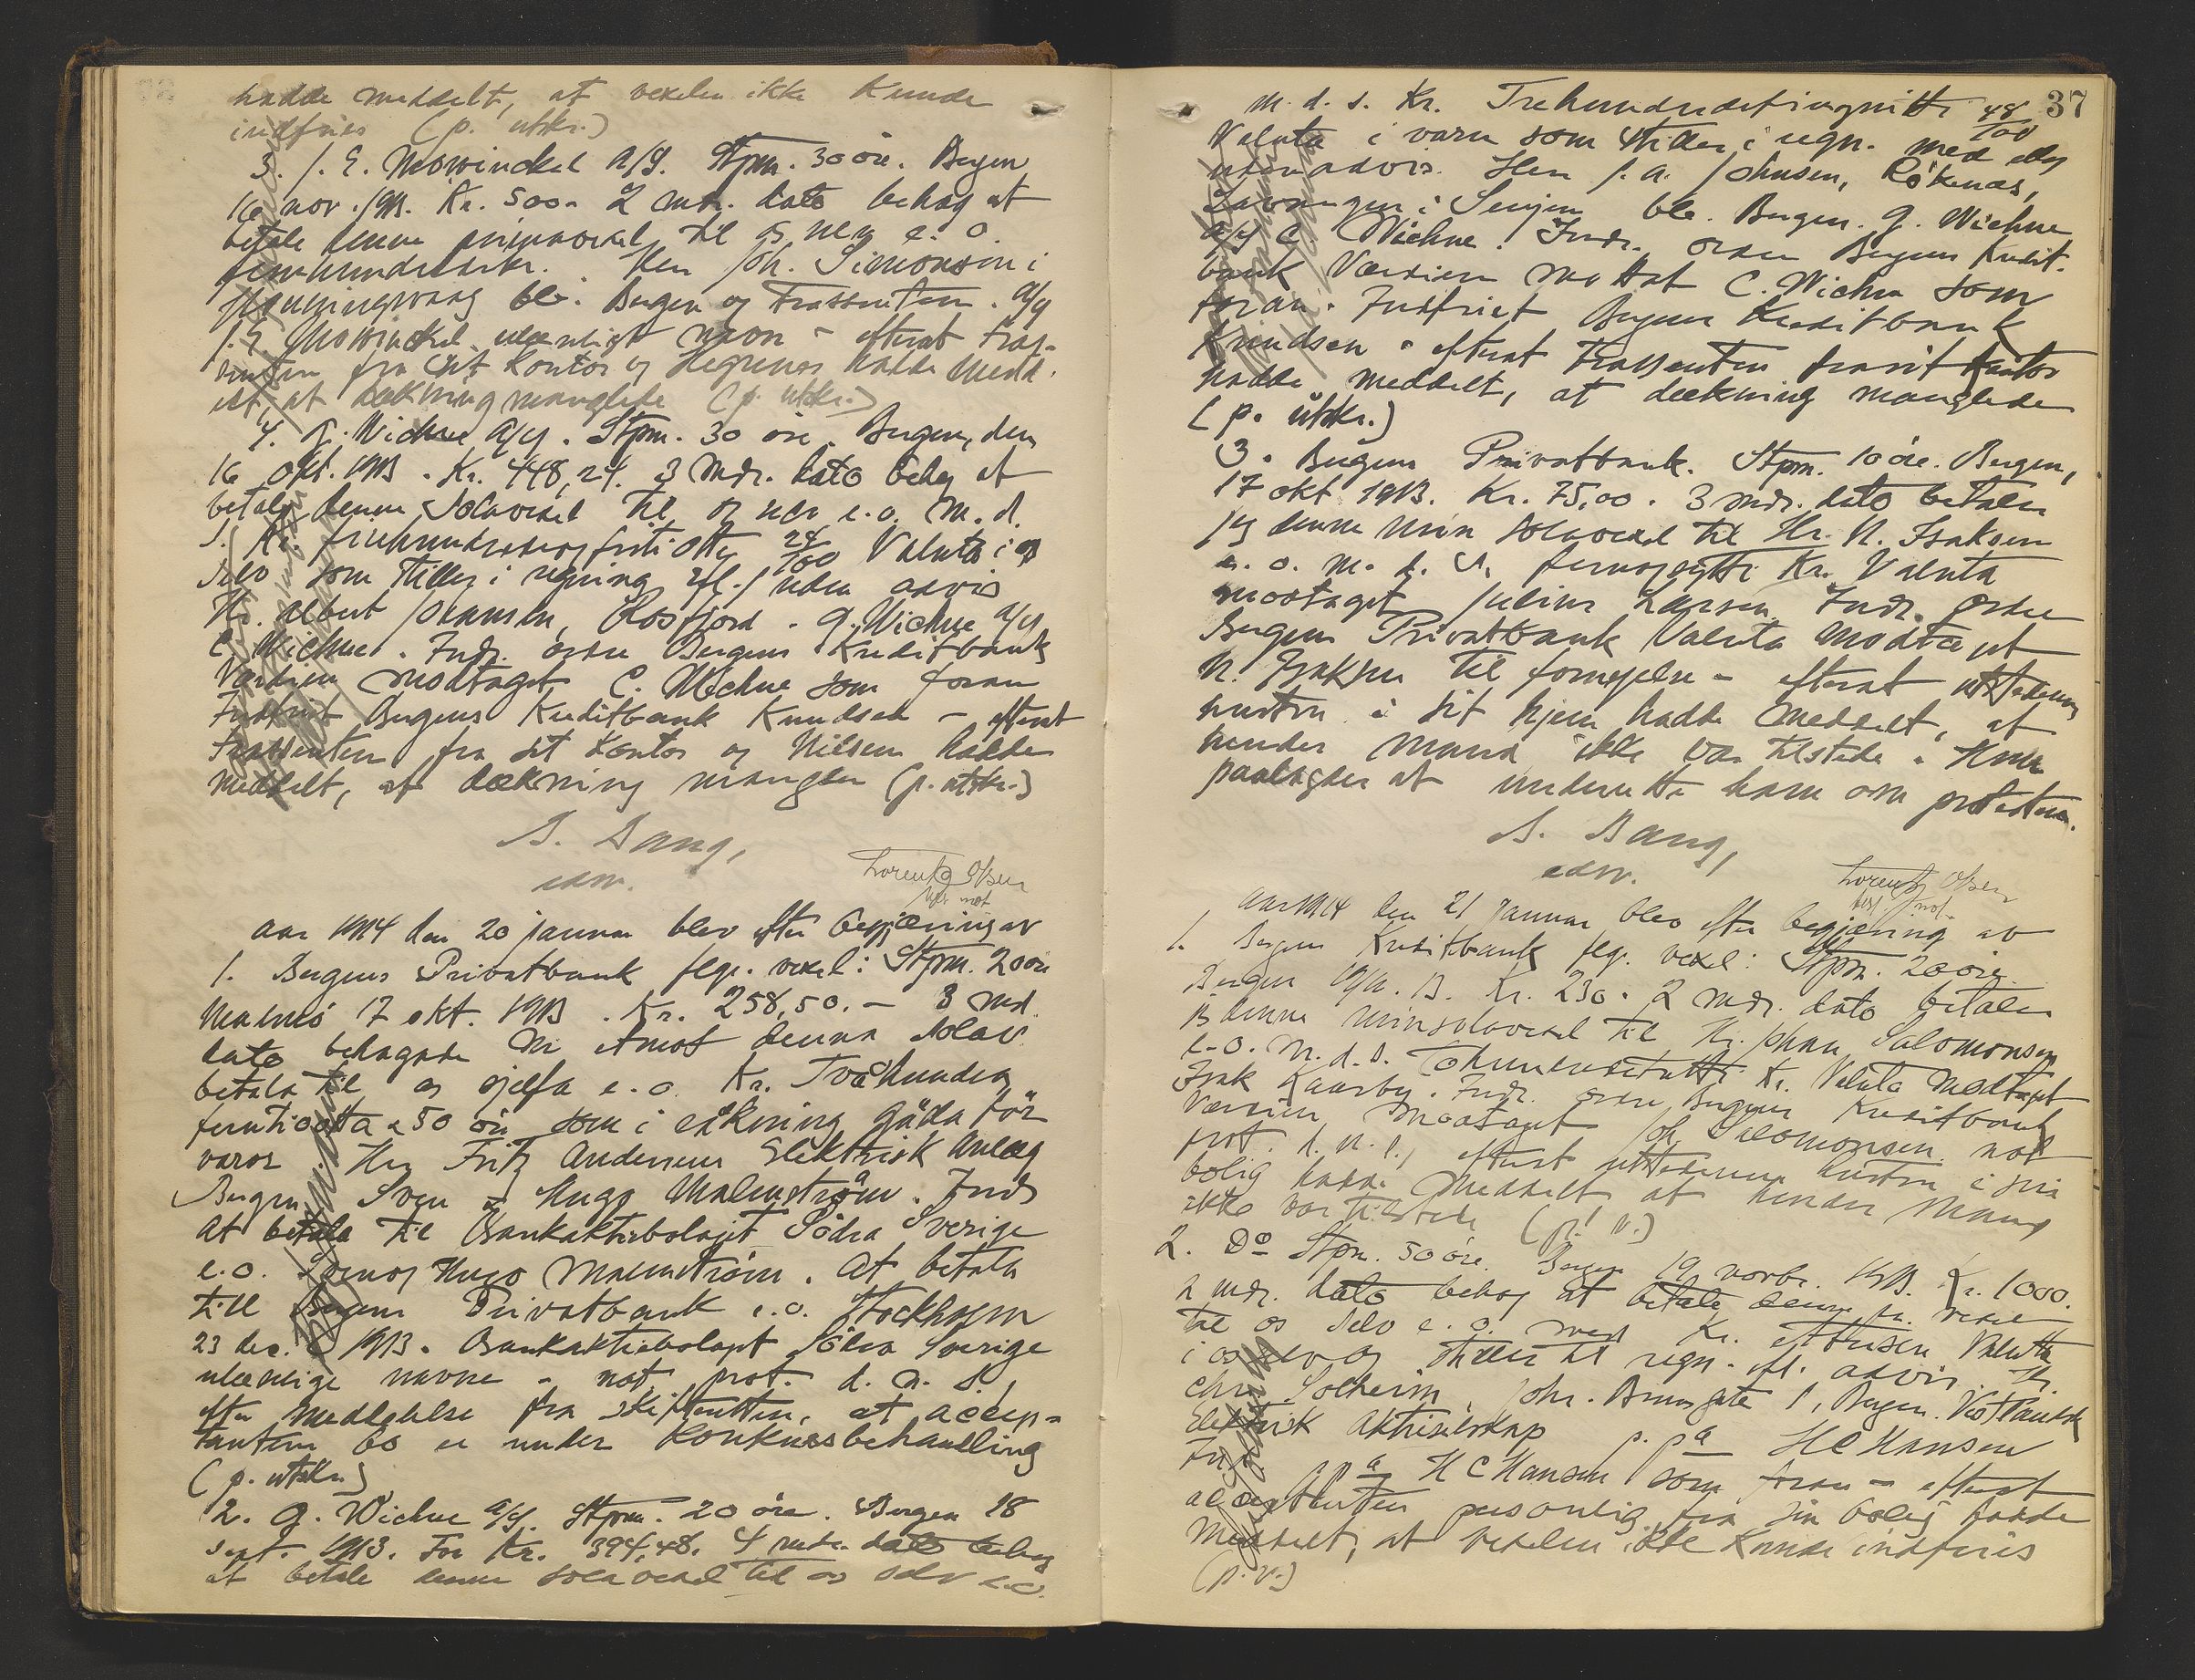 hadde meddelt, at vexelen ikke kunde
indfries (p. utkr.)
3. J. E. Mowinckel A/S. Stpm. 30 øre. Bergen
16 nov. 1913. Kr. 500 - 2 mdr. dato behag at
betale denne primavexel til os selv e. o.
femhundredekr. Herr Joh. Simonsen i
Honningsvaag ble. Bergen og Trassenten. A/S
J. E. Mowinckel ulæseligt navn - efterat tras-
senten fra sit kontor og Hegrenes hadde medd-
elt, at dækning manglede (p. utkr.)
4. G. Wichne A/S. Stpm. 30 øre. Bergen, den
16 okt. 1913. Kr. 448,24. 3 mdr. dato behag at
betale denne Solavexel til os selv e. o. M. d.
S. Kr. firehundredeogfirtiotte 24/100 Valuta i os
selv som stilles i regning efl./uden advis
Hr. Albert Johansen, Rosfjord. G. Wichne A/S
C. Wichne. Indr. ordre Bergens Kreditbank
Værdien modtaget C. Wichne som foran
Indfriet Bergens Kreditbank Knudsen - efterat
trassenten fra sit kontor og Nilsen hadde
meddelt, at dækning mangler (p. utkr.)
S. Bang,
edsv.
Lorentz Olsen
not
Aar 1914 den 20 januar blev efter begjæring av
1. Bergens Privatbank flg. vexel: Stpm. 20 øre
Malmö 17 okt. 1913. Kr. 258,50. - 3 md.
dato behagade Ni emot denna sola
betala til os sjelfa e. o. Kr. Tvåhundra
femtioåtta & 50 öre som i räkning gälla för
varor Herr Fritz Andersens Elektrisk Anlæg
Bergen Sven & Hugo Malmström. Inds
At betala til Bankaktiebolaget Södra Sverige
e. o. Sven og Hugo Malmström. At betala
till Bergens Privatbank e. o. Stockholm
23 dec. 1913. Bankaktiebolaget Södra Sverige
ulæselige navne - not. prot. d. n. s.,
efter meddelelse fra skifteretten, at accep-
tantens bo er under konkursbehandling
(p. utskr.)
2. G. Wichne A/S. Stpm. 20 øre. Bergen 18
sept. 1913. For Kr. 394,48. 4 mdr. dato behag
at betale denne solavexel til os selv e. o.
37
M. d. s. Kr. Trehundredefirognitti 48/100
Valuta i varer som stilles i regn. med eller
uten advis. Herr J. A. Johnsen, Röknes,
Lavangen i Senjen ble. Bergen. G. Wichne
A/S C. Wichne. Indr. ordre Bergens Kredit-
bank Værdien mottat C. Wichne som
foran. Indfriet Bergens Kreditbank
Knudsen - efterat trassenten fra sit kontor
hadde meddelt, at dækning manglede
(p. utkr.)
3. Bergens Privatbank. Stpm. 10 øre. Bergen,
17 okt 1913. Kr. 75,00. 3 mdr. dato betaler
jeg denne min solavexel til Hr. N. Isaksen
e. o. m. d. S. femogsytti Kr. Valuta
modtaget Julius Larsen Indr. ordre
Bergens Privatbank Valuta modtaget
N. Isaksen til fornøyelse - efterat utstederens
hustru i sit hjem hadde meddelt, at
hendes mand ikke var tilstede. Hun
paalagdes at underrette ham om protesten.
S. Bang,
edsv.
Lorentz Olsen
not.
Aar 1914 den 21 januar blev efter begjæring av
1. Bergens Kreditbank flg. vexel: Stpm. 20 øre
Bergen 19/11. 13. Kr. 230. 2 mdr. dato betaler
jeg denne min solavexel til Hr. Johan Salomonsen
e. o. M. d. S. Tohundredetretti Kr. Valuta modtaget
Isak Kaarby. Indr. ordre Bergens Kreditbank
Værdien modtaget Joh. Salomonsen. not
prot. d. n. s., efterat utstederens hustru i sin
bolig hadde meddelt at hendes mand
ikke var tilstede (p. v.)
2. Do Stpm. 50 øre. Bergen 19 novbr. 1913. Kr. 1000.
2 mdr. dato behag at betale denne pr. vexel
til os selv e. o. med Kr. ettusen Valuta
i os selv og stilles til regn. efl. advis. Hr.
Chr. Solheim, Johs. Brunsgate 1, Bergen. Vestlandsk
Elektrisk Aktieselskap p. pa H C Hansen
Fr. p pa H C Hansen som foran - efterat
acceptanten personlig fra sin bolig hadde
meddelt, at vexelen ikke kunde indfries
(p. v.)